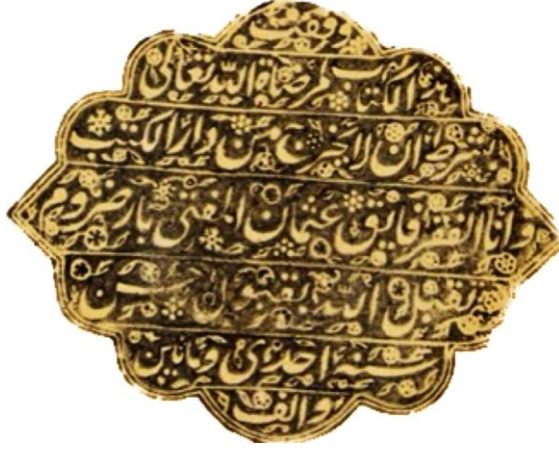 وقفت
هذا الكتاب لمرضاة الله تعالى
بشرط ان لا يخرج من دار الكتب
وانا الفقير فايق عثمان المفتى بارضروم
تقبل الله بقبول حسن
سنه احدى ومأتين
والف